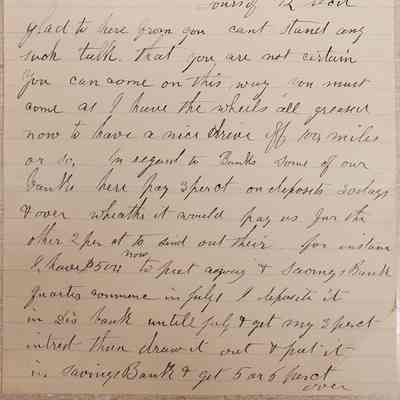 Yours of 12
glad to here from you cant stand any
such talk. that you are not certain
you can come on this way you must
come as I have the wheels all greased
now to have a nice drive off 100 miles
or so, In regard to Banks some of our
banks here pay 3 perct on deposits 30 days
& over wheathr it would pay us for the
other 2 per ct to send out their for instan
I have $500 now to put away & Savings Bank
quarter commence in July 1 I deposite it
in Dis bank untill July & get my 3 perct
intrest than draw it out & put it
in Savings Bank & get 5 or 6 perct
over